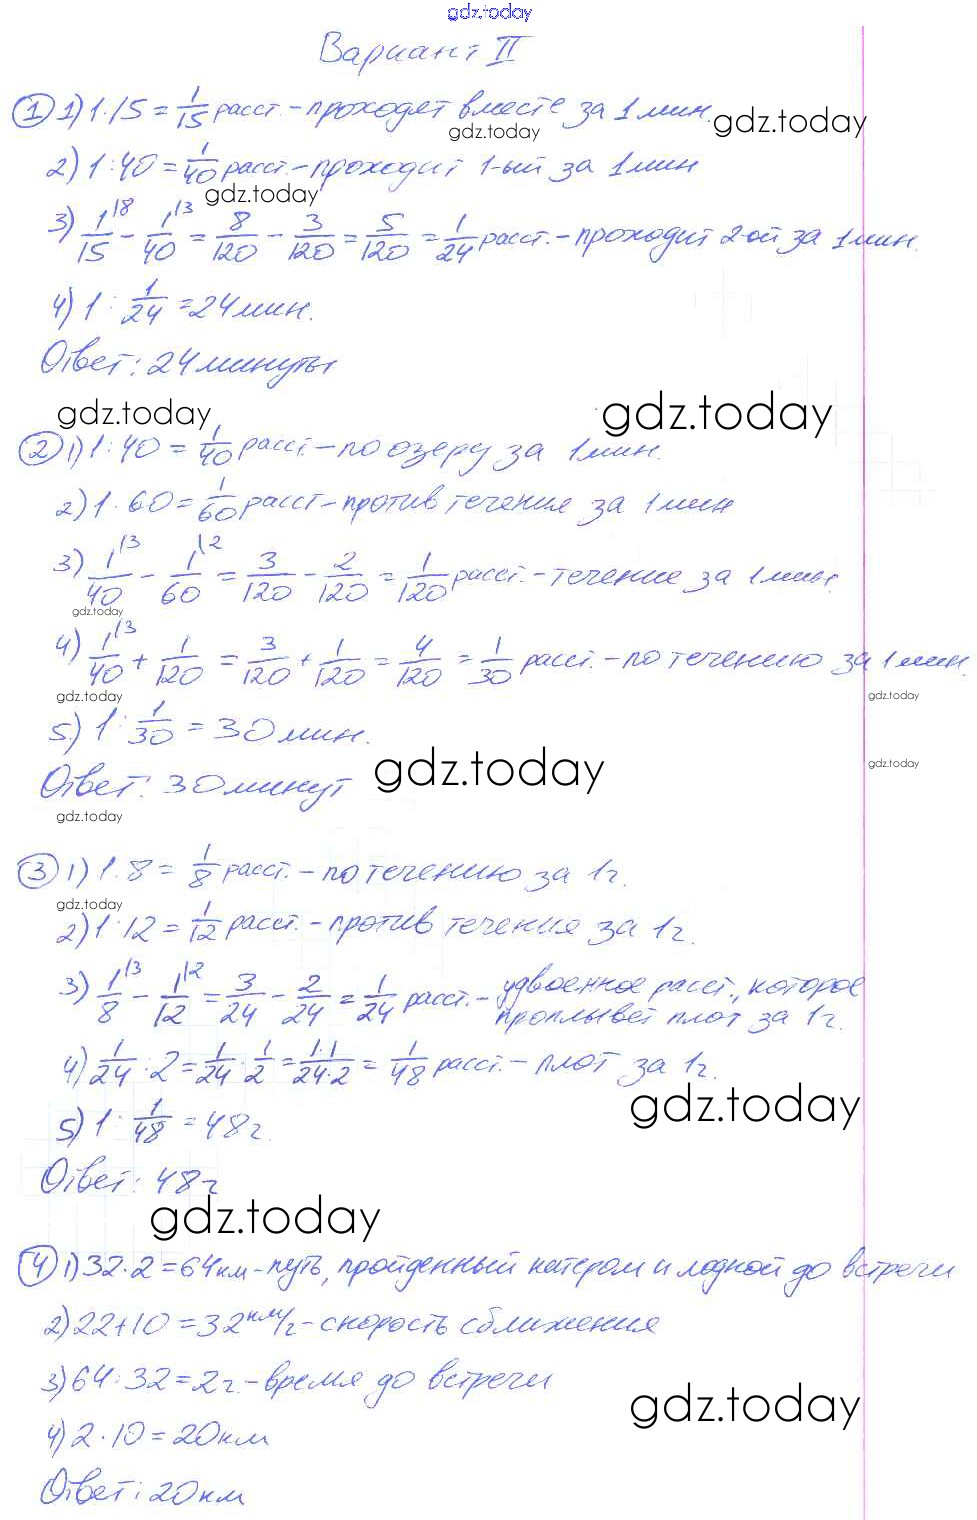 gdz.today
Вариант II
① 1) 1:15 = 1/15 расст. - проходят вместе за 1 мин.
gdz.today
gdz.today
2) 1:40 = 1/40 расст. - проходит 1-ый за 1 мин
gdz.today
3) 1/15 |8 - 1/40 |3 = 8/120 - 3/120 = 5/120 = 1/24 расст. - проходит 2-ой за 1 мин.
4) 1 : 1/24 = 24 мин.
Ответ: 24 минуты
gdz.today gdz.today
② 1) 1:40 = 1/40 расст - по озеру за 1 мин.
2) 1:60 = 1/60 расст - против течения за 1 мин
3) 1/40 |3 - 1/60 |2 = 3/120 - 2/120 = 1/120 расст. - течение за 1 мин.
gdz.today
4) 1/40 |3 + 1/120 = 3/120 + 1/120 = 4/120 = 1/30 расст. - по течению за 1 мин.
gdz.today gdz.today
5) 1 : 1/30 = 30 мин.
gdz.today gdz.today
Ответ: 30 минут
gdz.today
③ 1) 1:8 = 1/8 расст. - по течению за 1 г.
gdz.today
2) 1:12 = 1/12 расст. - против течения за 1 г.
3) 1/8 |3 - 1/12 |2 = 3/24 - 2/24 = 1/24 расст. - удвоенное расст., которое
проплывёт плот за 1 г.
4) 1/24 : 2 = 1/24 · 1/2 = 1·1/24·2 = 1/48 расст. - плот за 1 г.
gdz.today
5) 1 : 1/48 = 48 г.
Ответ: 48 г
gdz.today
④ 1) 32·2 = 64 км - путь, пройденный катером и лодкой до встречи
2) 22+10 = 32 км/г - скорость сближения
3) 64:32 = 2 г. - время до встречи
gdz.today
4) 2·10 = 20 км
Ответ: 20 км